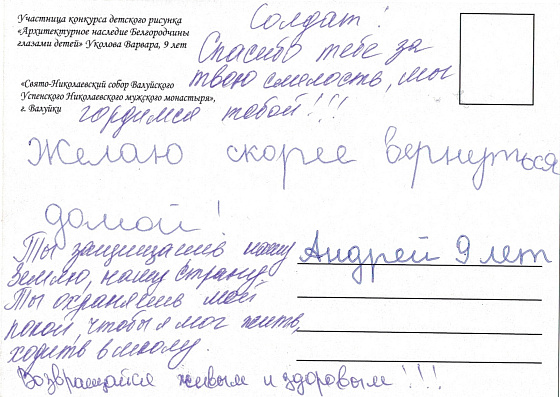 Участница конкурса детского рисунка
«Архитектурное наследие Белгородчины
глазами детей» Уколова Варвара, 9 лет
«Свято-Николаевский собор Валуйского
Успенского Николаевского мужского монастыря»,
г. Валуйки
Солдат!
Спасибо тебе за
твою смелость, мы
гордимся тобой!!!
Желаю скорее вернуться
домой!
Ты защищаешь нашу
Землю, нашу Страну
Ты охраняешь мой
покой, чтобы я мог жить,
ходить в школу.
Андрей 9 лет
Возвращайся живым и здоровым!!!